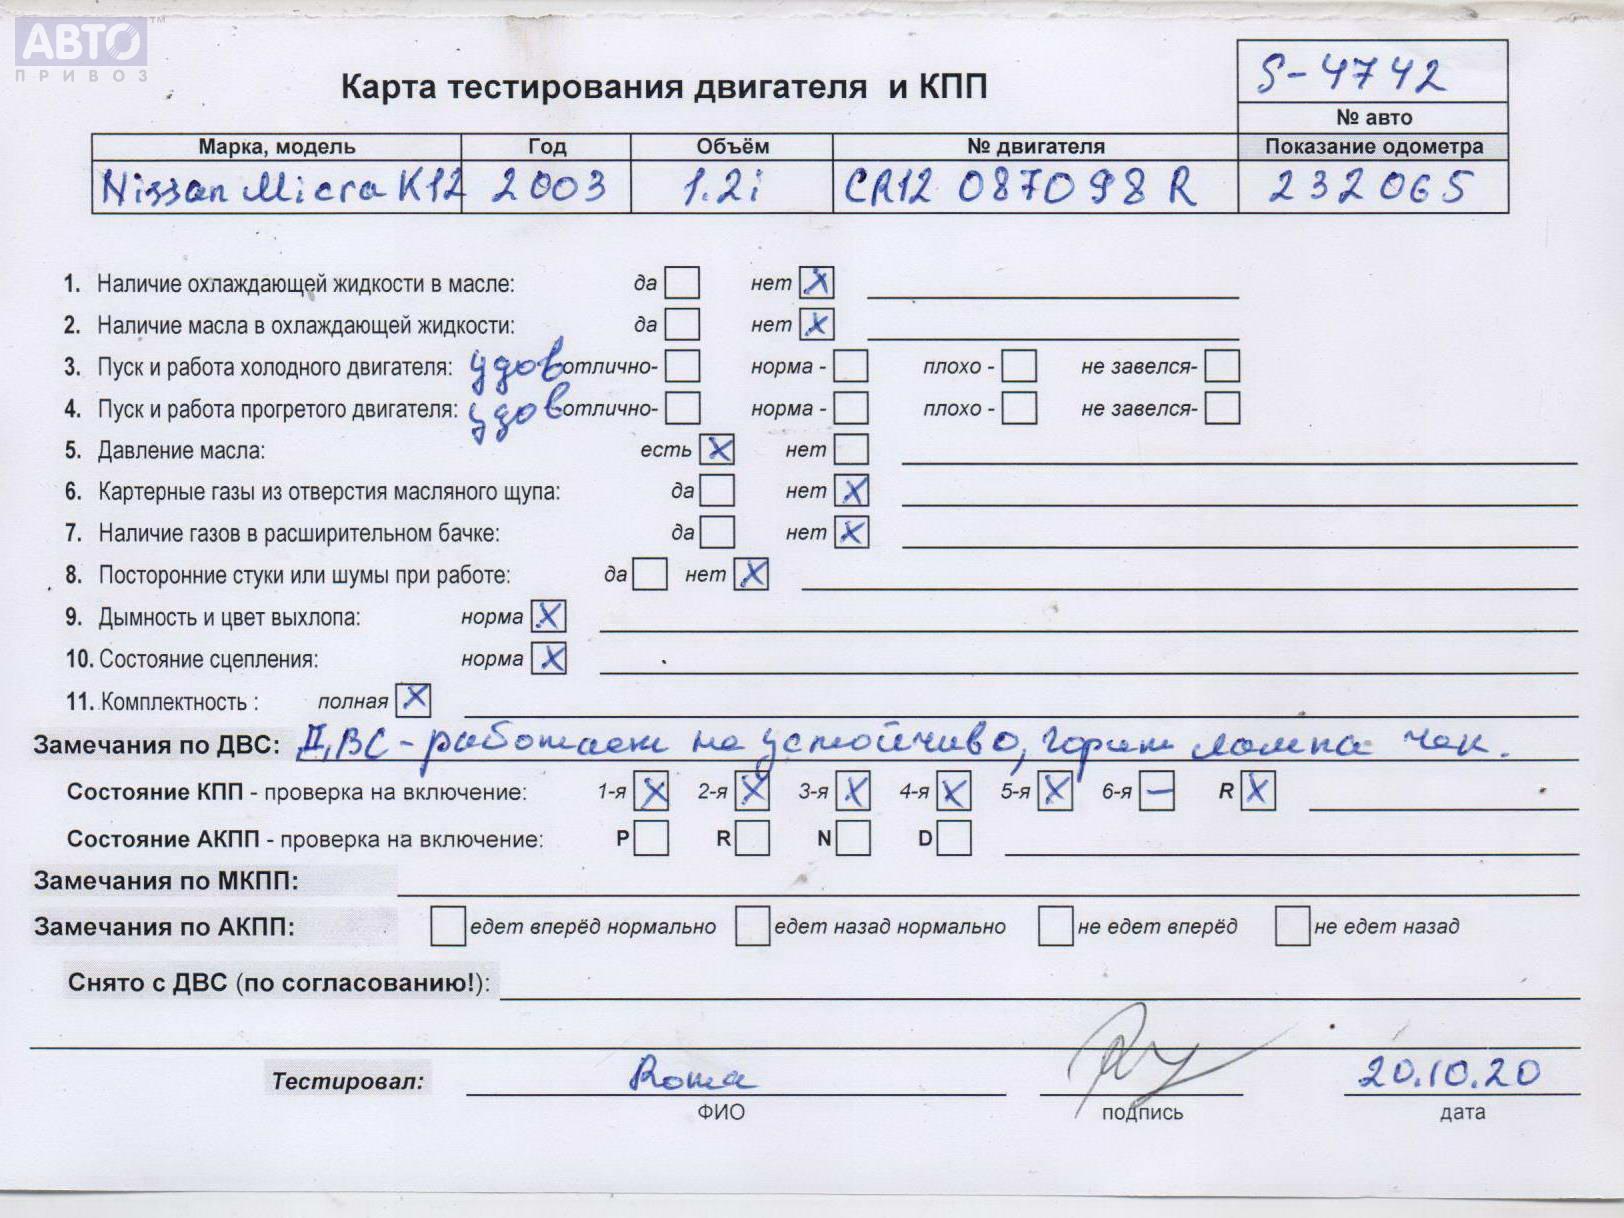 АВТО™
ПРИВОЗ
S-4742
Карта тестирования двигателя и КПП
№ авто
Марка, модель Год Объём № двигателя Показание одометра
Nissan Micra K12 2003 1.2i CR12 087098R 232065
1. Наличие охлаждающей жидкости в масле: да нет X
2. Наличие масла в охлаждающей жидкости: да нет X
3. Пуск и работа холодного двигателя: удов отлично- норма - плохо - не завелся-
4. Пуск и работа прогретого двигателя: удов отлично- норма - плохо - не завелся-
5. Давление масла: есть X нет
6. Картерные газы из отверстия масляного щупа: да нет X
7. Наличие газов в расширительном бачке: да нет X
8. Посторонние стуки или шумы при работе: да нет X
9. Дымность и цвет выхлопа: норма X
10. Состояние сцепления: норма X
11. Комплектность : полная X
Замечания по ДВС: ДВС - работает не устойчиво, горит лампа чек.
Состояние КПП - проверка на включение: 1-я X 2-я X 3-я X 4-я X 5-я X 6-я — R X
Состояние АКПП - проверка на включение: P R N D
Замечания по МКПП:
Замечания по АКПП: едет вперёд нормально едет назад нормально не едет вперёд не едет назад
Снято с ДВС (по согласованию!):
Тестировал: Рома 20.10.20
ФИО подпись дата